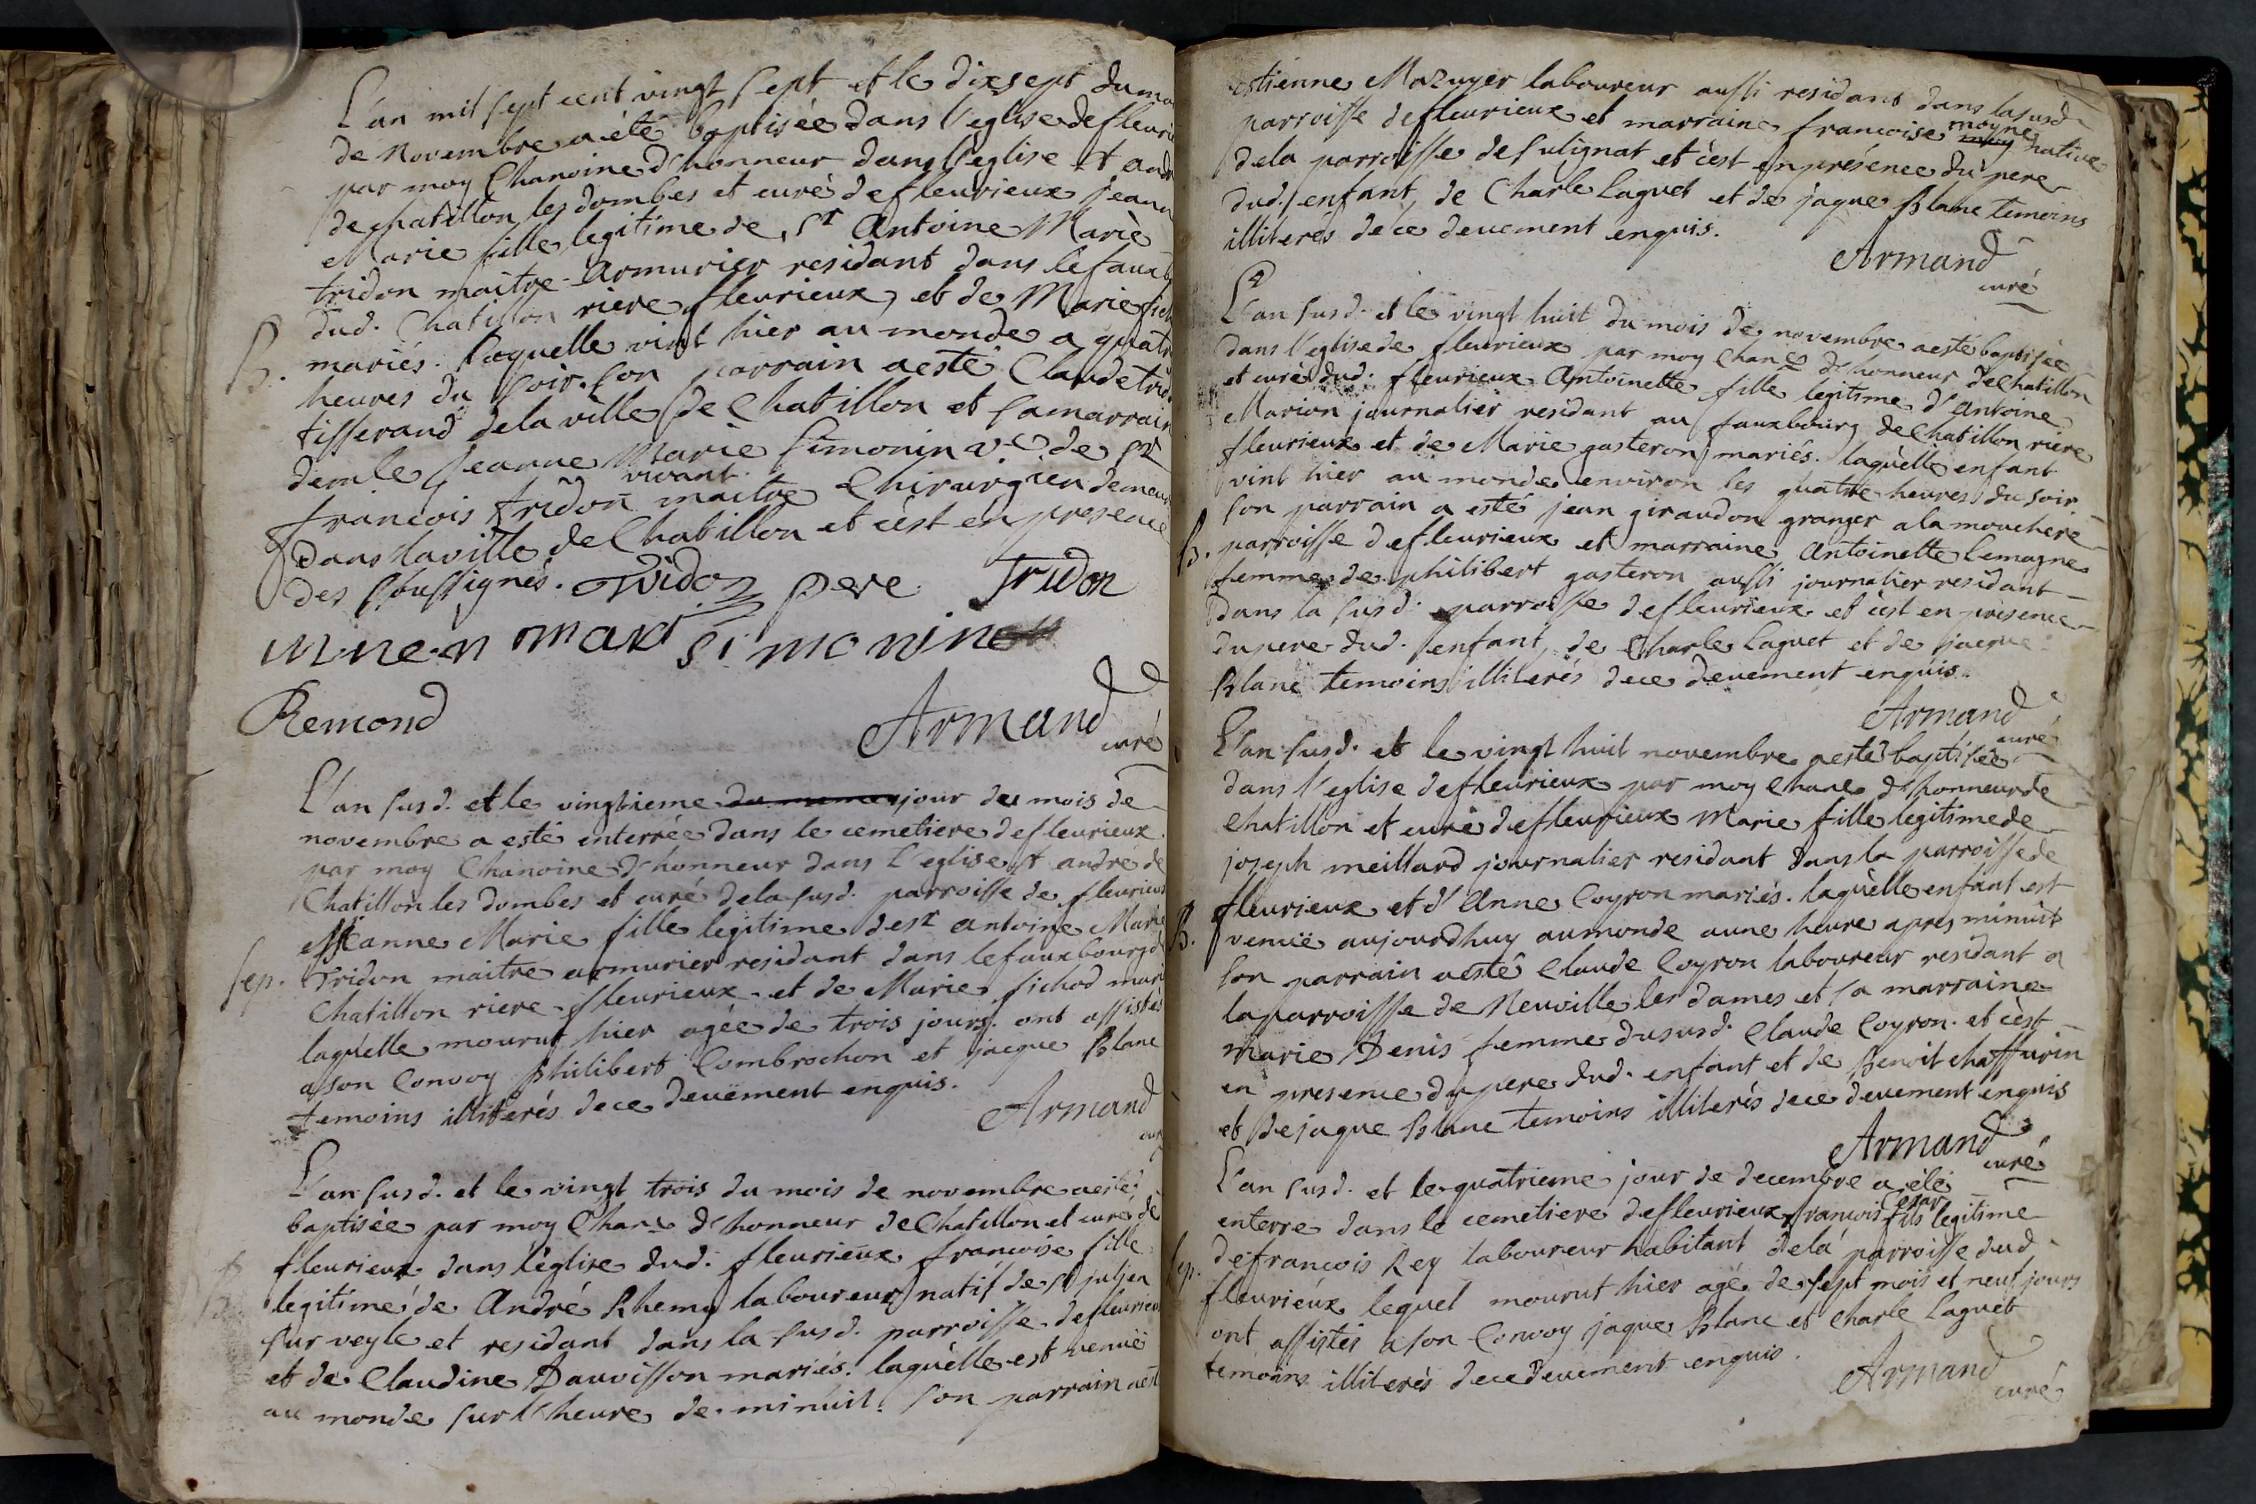 L'an mil sept cent vingt sept et le dix sept du mo
de Novembre a été baptisée dans l'eglise de fleurie
par moy Chanoine d'honneur dans l'eglise st andr
de chatillon les dombes et curé de fleurieux jeann
Marie fille legitime de sr Antoine Marie
tridon maitre Armurier residant dans le faux
dud. Chatillon riere fleurieux, et de Marie fich
B. mariés. laquelle vint hier au monde a quatre
heures du soir. son parrain a esté Claude trid
tisserand de la ville de Chatillon et sa marrain
demlle jeanne Marie Simonin v.e de sr
françois tridon vivant maitre Chirurgien demeu
dans la ville de Chatillon et c'est en presence
des soussignés. Tridon pere Tridon
mari simonin
Remond
Armand
curé
L'an susd. et le vingtieme du meme jour du mois de
novembre a esté enterrée dans le cemetiere de fleurieux
par moy Chanoine d'honneur dans l'eglise st andre de
Chatillon les dombes et curé de la susd. parroisse de fleurieux
jeanne Marie fille legitime de sr antoine Marie
sep. Tridon maitre armurier residant dans le fauxbourg d
Chatillon riere fleurieux et de Marie fichod mari
laquelle mourut hier agée de trois jours. ont assistés
a son Convoy philibert Combrochon et jacque Blanc
temoins illiterés de ce deuëment enquis.
Armand
L'an susd. et le vingt trois du mois de novembre a esté
baptisée par moy Chane d'honneur de Chatillon et curé de
fleurieux dans l'église dud. fleurieux francoise fille
B. legitime de André Rhemy laboureur natif de st julien
sur veyle et residant dans la susd. parroisse de fleurieux
et de Claudine Dauvisson mariés. laquelle est venuë
au monde sur l'heure de minuit. son parrain a est
estienne Mazuyer laboureur aussi residant dans la susd
parroisse de fleurieux et marraine francoise moyne native
de la parroisse de sulignat et c'est en présence du pere
dud. enfant, de Charle Laguet et de jaque Blanc temoins
illiterés de ce deuement enquis.
Armand
curé
L'an susd. et le vingt huit du mois de novembre a esté baptisée
dans l'eglise de fleurieux par moy Chane d'honneur de Chatillon
et curé dud. fleurieux Antoinette fille legitime d'Antoine
Marion journalier residant au fauxbourg de Chatillon riere
fleurieux et de Marie gasteron mariés. laquelle enfant
vint hier au monde environ les quatre heures du soir
son parrain a esté jean giraudon granger a la mouchere
B. parroisse de fleurieux et marraine Antoinette Lemogne
femme de philibert gasteron aussi journalier residant
dans la susd. parroisse de fleurieux et c'est en presence
du pere dud. enfant, de Charle Laguet et de jacque
Blanc temoins illiterés de ce deuement enquis.
Armand
curé
L'an susd. et le vingt huit novembre a esté baptisée
dans l'eglise de fleurieux par moy chane d'honneur de
Chatillon et curé de fleurieux Marie fille legitime de
joseph meillard journalier residant dans la parroisse de
fleurieux et d'Anne Coyron mariés. laquelle enfant est
B. venuë aujourdhuy au monde a une heure apres minuit
son parrain a esté Claude Coyron laboureur residant a
la parroisse de Neuville les dames et sa marraine
Marie Denis femme du susd. Claude Coyron. et c'est
en presence du pere dud. enfant et de Benoit chaffurin
et de jaque Blanc temoins illiterés de ce deuement enquis
Armand
curé
L'an susd. et le quatrieme jour de decembre a été
enterre dans le cemetiere de fleurieux francois Cesar fils legitime
sep. de francois Rey laboureur habitant de la parroisse dud.
fleurieux lequel mourut hier agé de sept mois et neuf jours
ont assistés a son Convoy jaque Blanc et Charle Laguet
temoins illiterés de ce deuement enquis.
Armand
curé